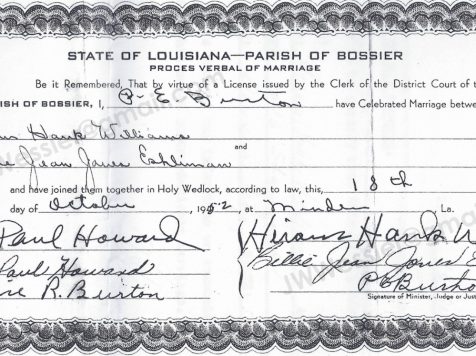 STATE OF LOUISIANA—PARISH OF BOSSIER
PROCES VERBAL OF MARRIAGE
Be it Remembered, That by virtue of a License issued by the Clerk of the District Court of the
RISH OF BOSSIER, I, P. E. Burton have Celebrated Marriage between
Hank Williams
and
Jean Jones Eshliman
and have joined them together in Holy Wedlock, according to law, this, 18th
day of October, 1952, at Minden La.
Paul Howard Hiram Hank W
Paul Howard Billie Jean Jones E
R. Burton P E Burton
Signature of Minister, Judge or Just